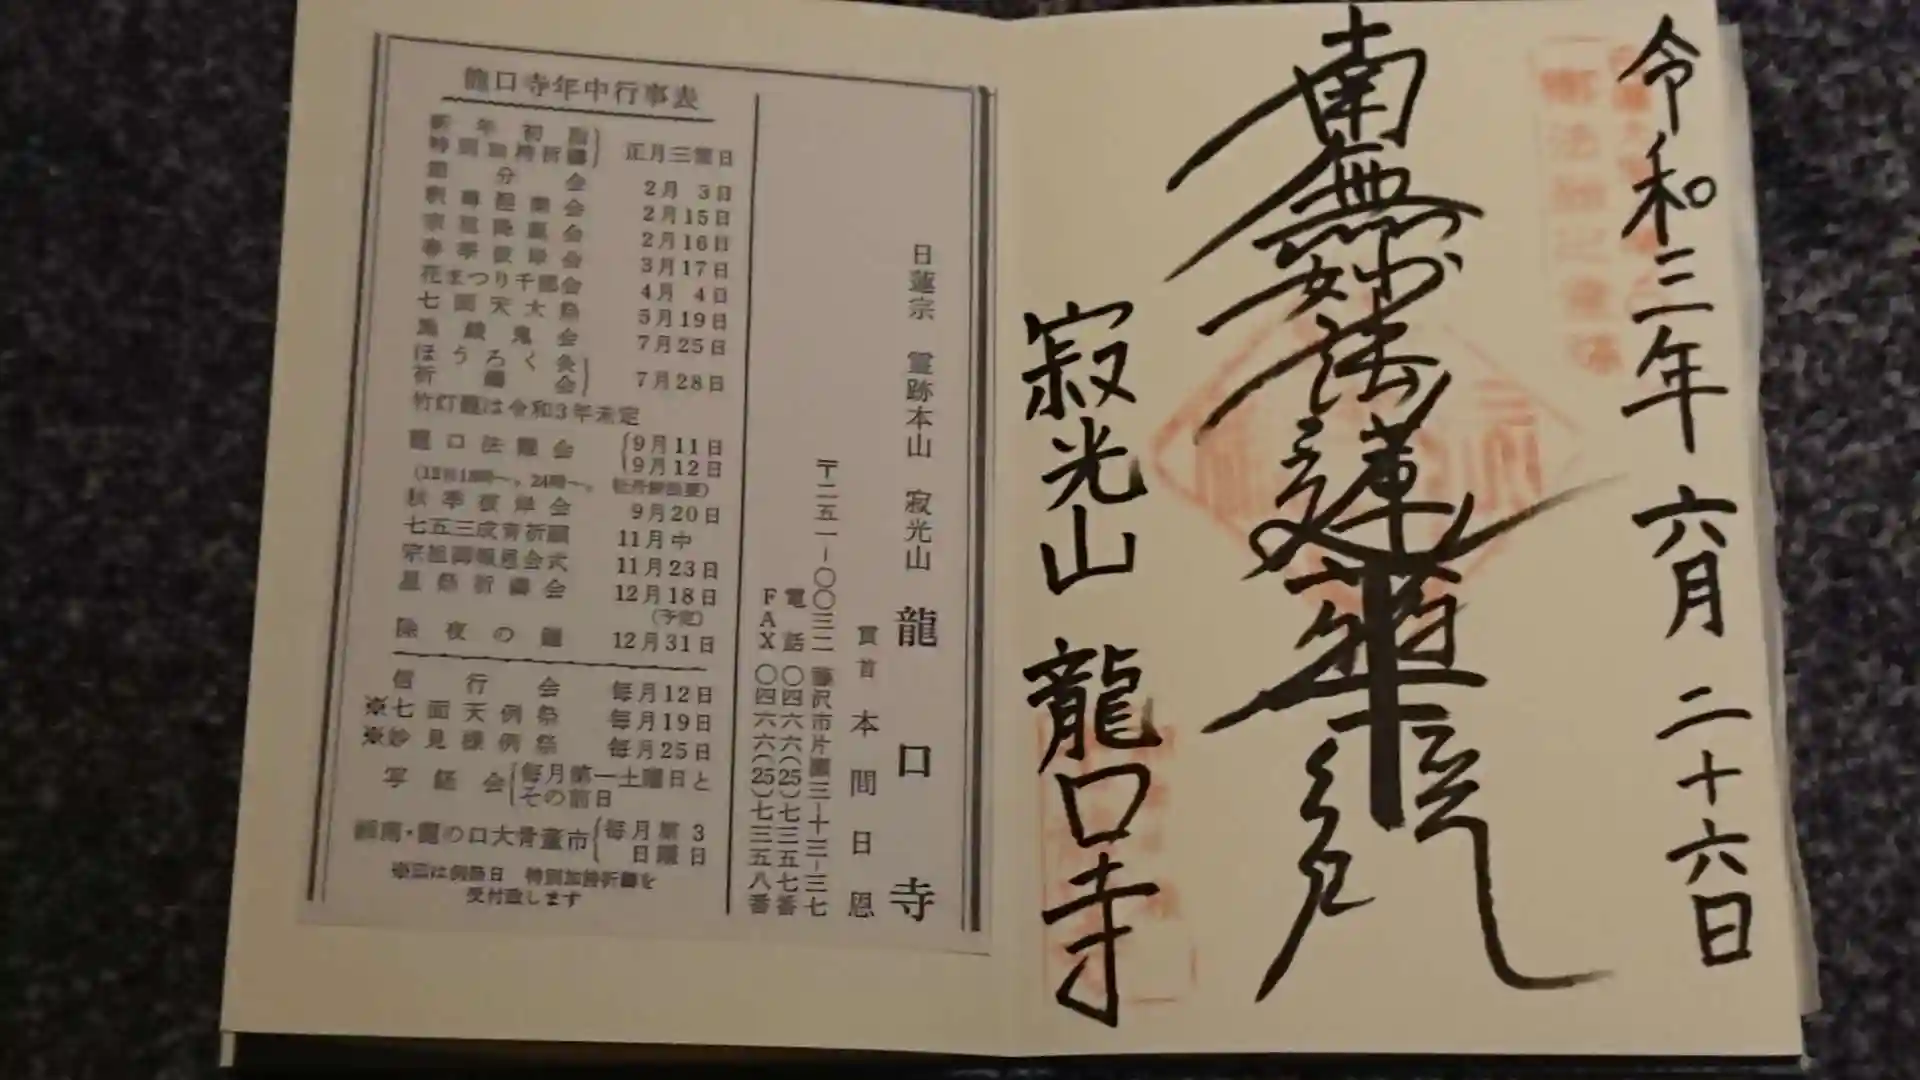 令和三年 六月 二十六日
南無妙法蓮華経
寂光山 龍口寺
日蓮宗 霊跡本山 寂光山 龍口寺
貫首 本間日恩
〒二五一-〇〇三二 藤沢市片瀬三-十三-三七
電話 〇四六六(25)七三五七番
FAX 〇四六六(25)七三五八番
龍口寺年中行事表
新年初詣
特別加持祈禱 正月三箇日
節分会 2月 3日
釈尊涅槃会 2月15日
宗祖降誕会 2月16日
春季彼岸会 3月17日
花まつり千部会 4月 4日
七面天大祭 5月19日
施餓鬼会 7月25日
ほうろく灸
祈禱会 7月28日
竹灯籠は令和3年未定
龍口法難会 9月11日
9月12日
(12日18時〜。24時〜。 牡丹餅供養)
秋季彼岸会 9月20日
七五三成育祈願 11月中
宗祖御報恩会式 11月23日
星祭祈禱会 12月18日
(予定)
除夜の鐘 12月31日
信行会 毎月12日
※七面天例祭 毎月19日
※妙見様例祭 毎月25日
写経会 毎月第一土曜日と
その前日
湘南・龍の口大骨董市 毎月第3
日曜日
※印は例祭日 特別加持祈禱を
受付致します